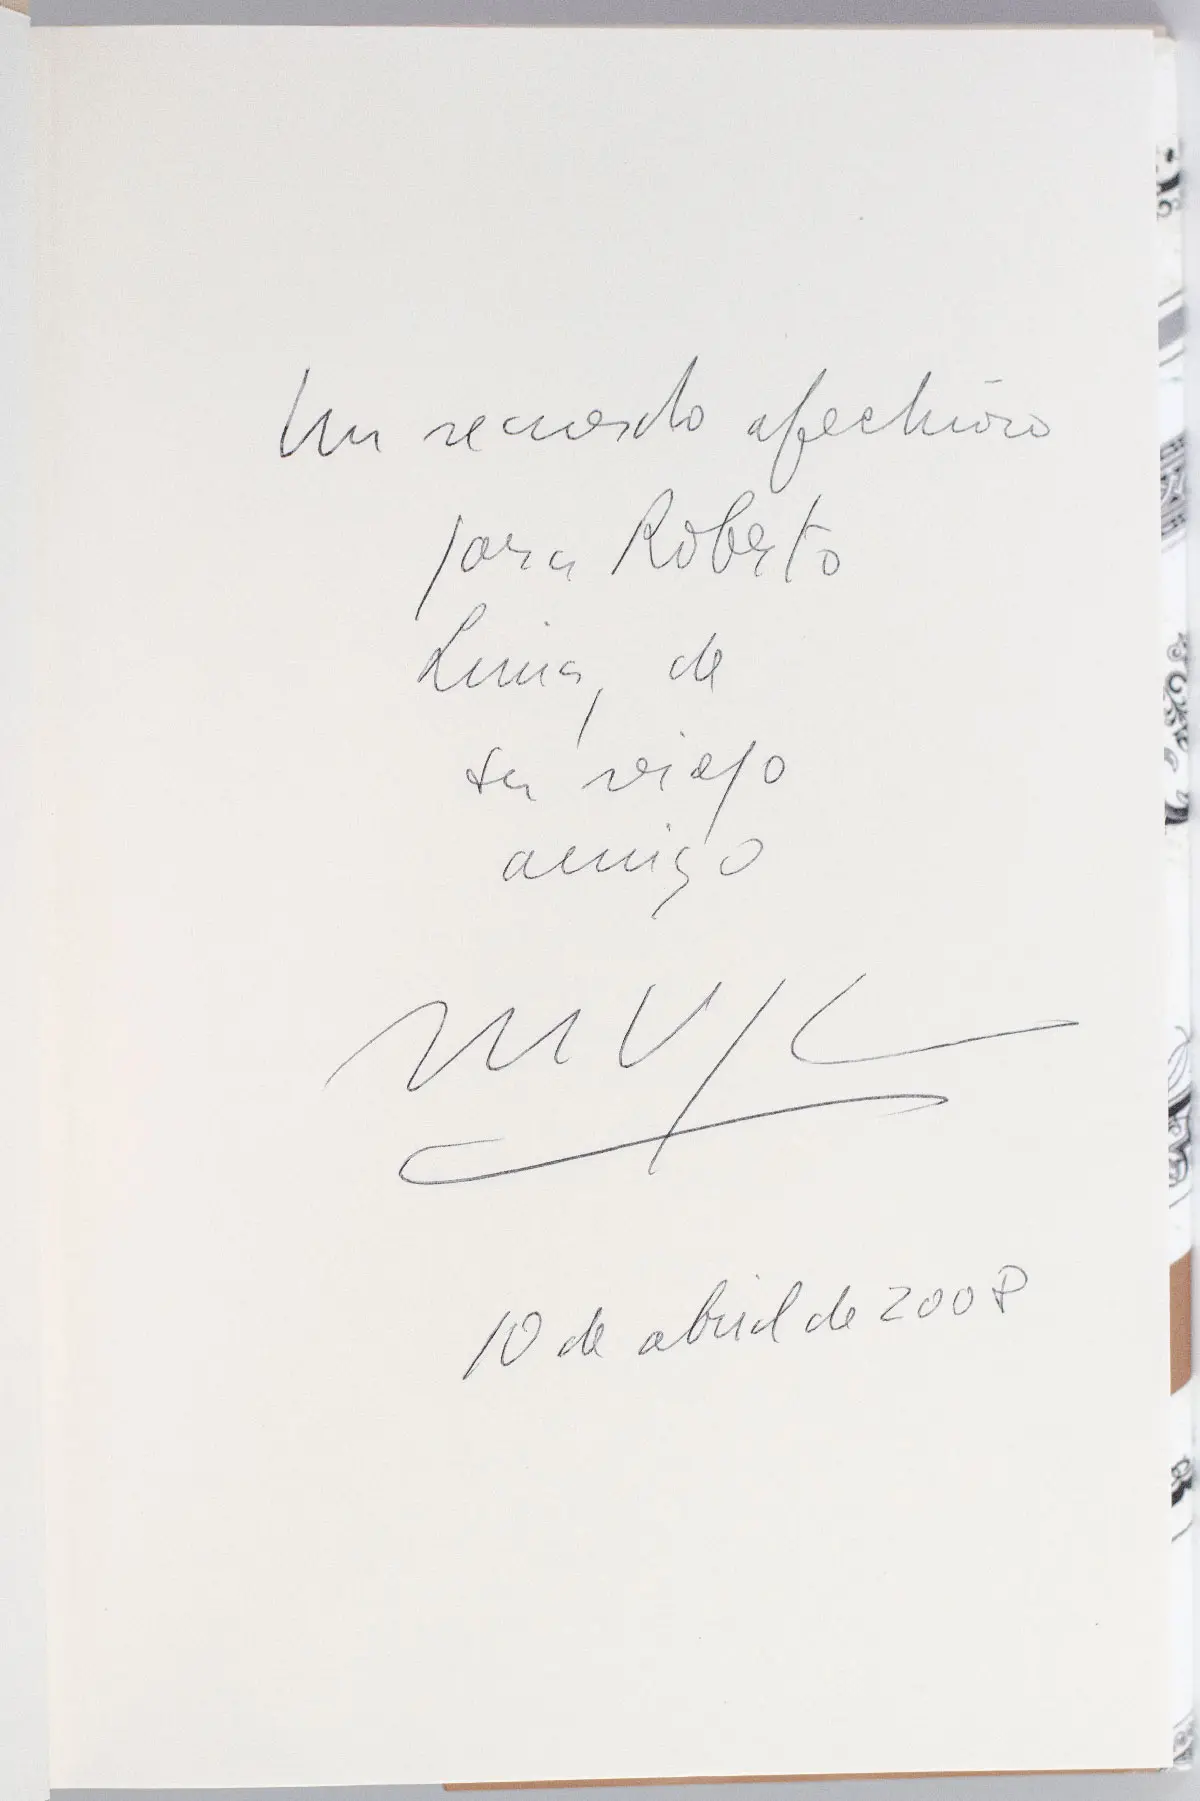 Un recuerdo afectuoso
para Roberto
Lima, de
su viejo
amigo
MVLL
10 de abril de 2008